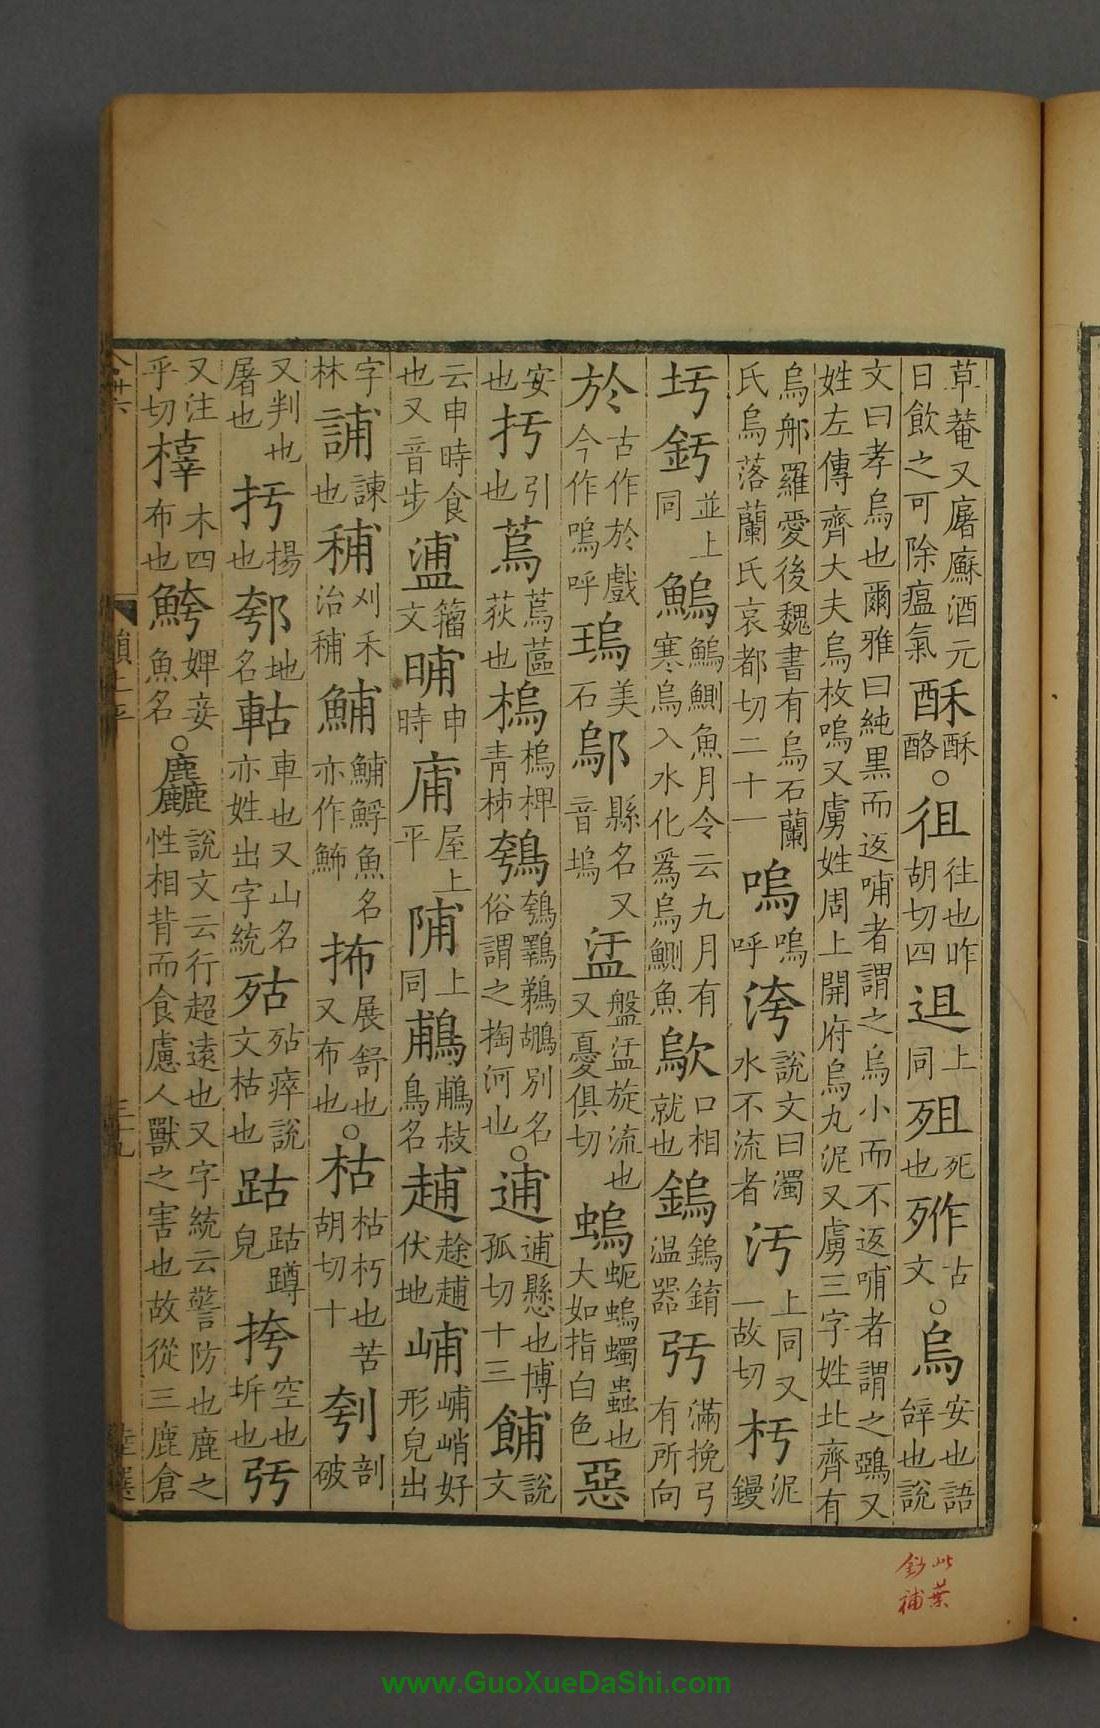 草菴又屠㢝酒元日飲之可除瘟氣酥酥酪○徂往也昨胡切四䢐上同殂死也𣨛古文○烏安也語辝也說
文曰孝烏也爾雅曰純黑而返哺者謂之烏小而不返哺者謂之鵶又姓左傳齊大夫烏枚嗚又虜姓周上開府烏丸泥又虜三字姓北齊有
烏𨚗羅愛後魏書有烏石蘭氏烏落蘭氏哀都切二十一嗚嗚呼洿說文曰濁水不流者汙上同又一故切杇泥鏝
圬釫並上同鰞鰞鰂魚月令云九月有寒烏入水化爲烏鰂魚歍口相就也鎢鎢錥温器弙滿挽弓有所向
於古作於戲今作嗚呼瑦美石鄔縣名又音塢盓盤盓旋流也又憂俱切螐蚅螐蠋蟲也大如指白色惡
安也扝引也荻也樢樢椑青柹鴮鴮鸅鵜鶘別名俗謂之掏河也○逋逋懸也博孤切十三餔說文
云申時食也又音步籀文晡申時庯屋上平陠上同鵏鵏䳕鳥名䞯䞬䞯伏地峬峬峭好形皃出
字林誧諫也秿刈禾治秿鯆鯆䱐魚名亦作抪展舒也又布也○枯枯朽也苦胡切十刳剖破
又判也屠也扝揚也郀地名軲車也又山名亦姓出字統㱠㱠瘁說文枯也跍跍蹲皃挎空也也弙
又注乎切木四布也婢妾魚名○麤說文云行超遠也又字統云警防也鹿之性相背而食慮人獸之害也故從三鹿倉
此葉
鈔補
www.GuoXueDaShi.com